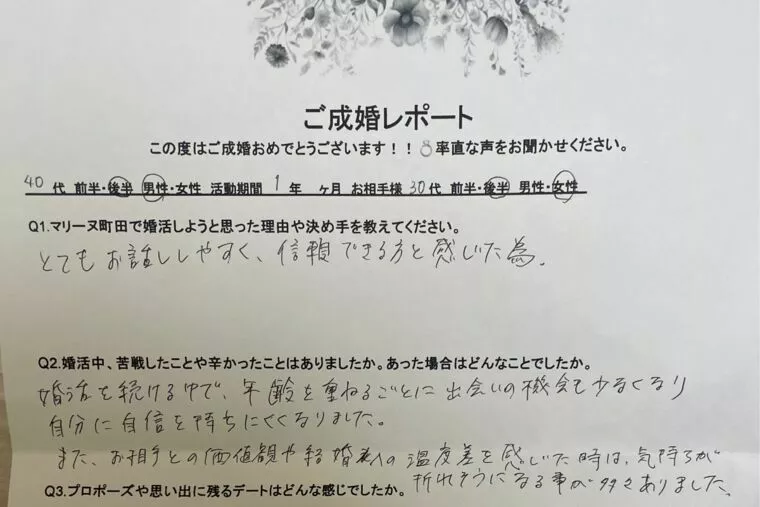 ご成婚レポート
この度はご成婚おめでとうございます！！💍率直な声をお聞かせください。
40代 前半・後半 男性・女性 活動期間 1年 ヶ月 お相手様 30代 前半・後半 男性・女性
Q1.マリーヌ町田で婚活しようと思った理由や決め手を教えてください。
とてもお話ししやすく、信頼できる方と感じた為。
Q2.婚活中、苦戦したことや辛かったことはありましたか。あった場合はどんなことでしたか。
婚活を続ける中で、年齢を重ねるごとに出会いの機会も少なくなり
自分に自信を持ちにくくなりました。
また、お相手との価値観や結婚への温度差を感じた時は、気持ちが
折れそうになる事が多々ありました。
Q3.プロポーズや思い出に残るデートはどんな感じでしたか。